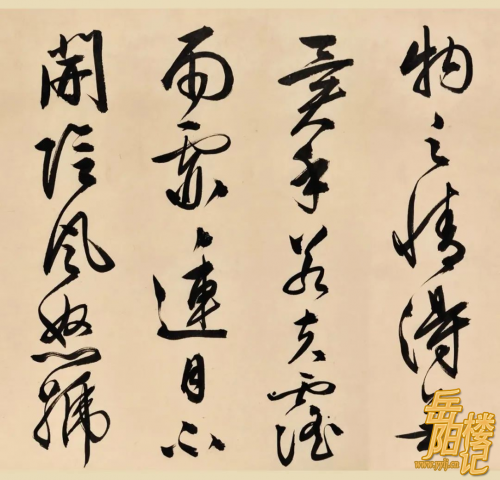 物之情得無
異乎若夫霪
雨霏〻連月不
開陰風怒號
岳阳楼记
www.yylj.cn